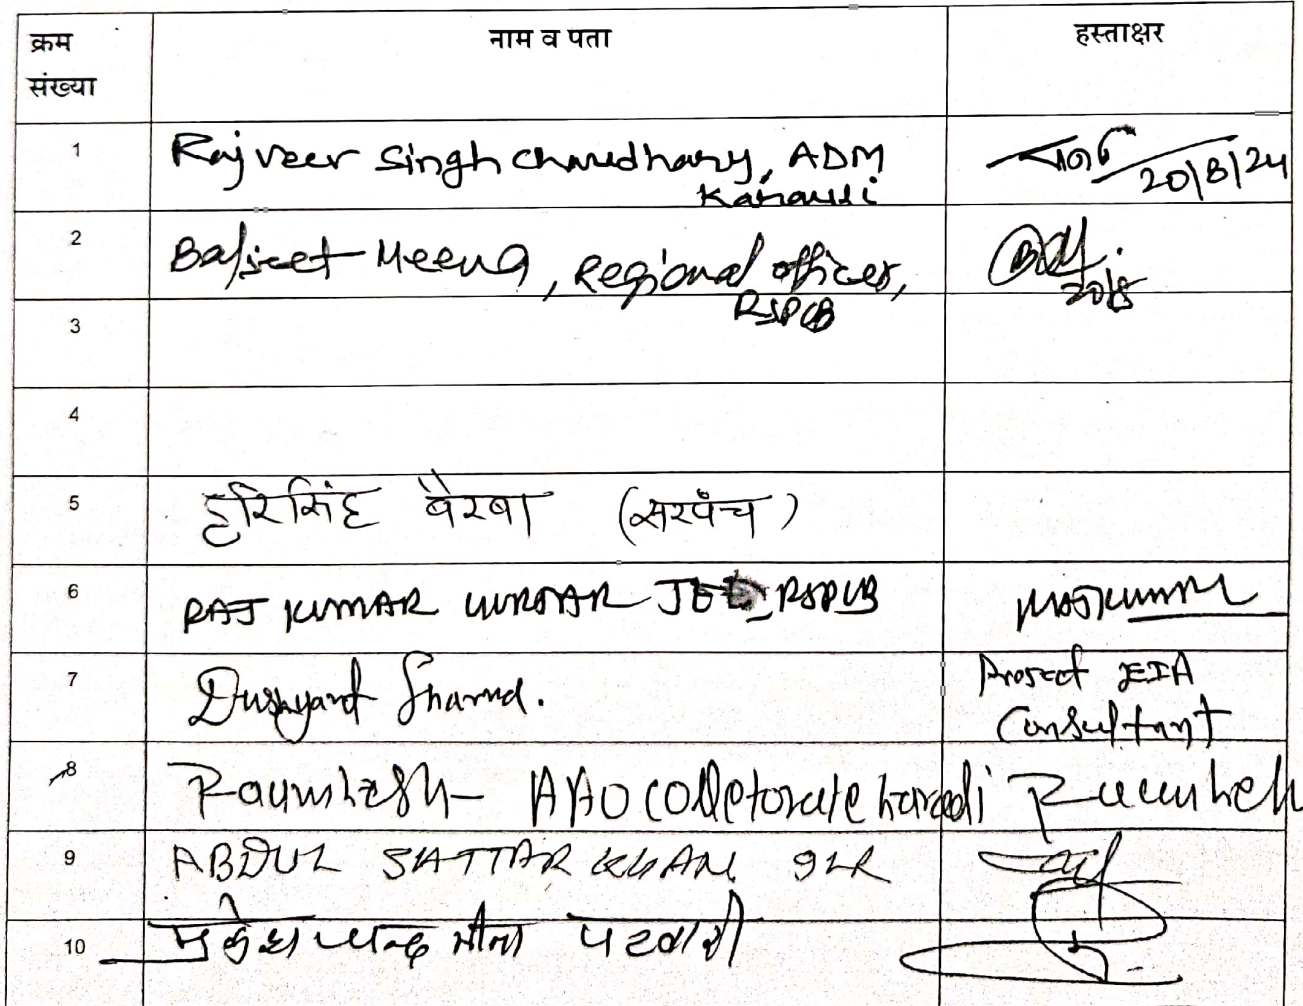 क्रम संख्या नाम व पता हस्ताक्षर
1 Rajveer Singh Chaudhary, ADM
Karauli 20/8/24
2 Baljeet Meena, Regional Officer,
RSPCB 20/8
3
4
5 हरिसिंह बैरबा (सरपंच)
6 RAJ KUMAR GURJAR JEE, RSPCB RAJKUMAR
7 Dushyant Sharma. Project EIA
Consultant
8 AAO Colletorate karaoli
9 ABDUL SATTAR KHAN ILR
10 मुकेश चन्द मीना पटवारी